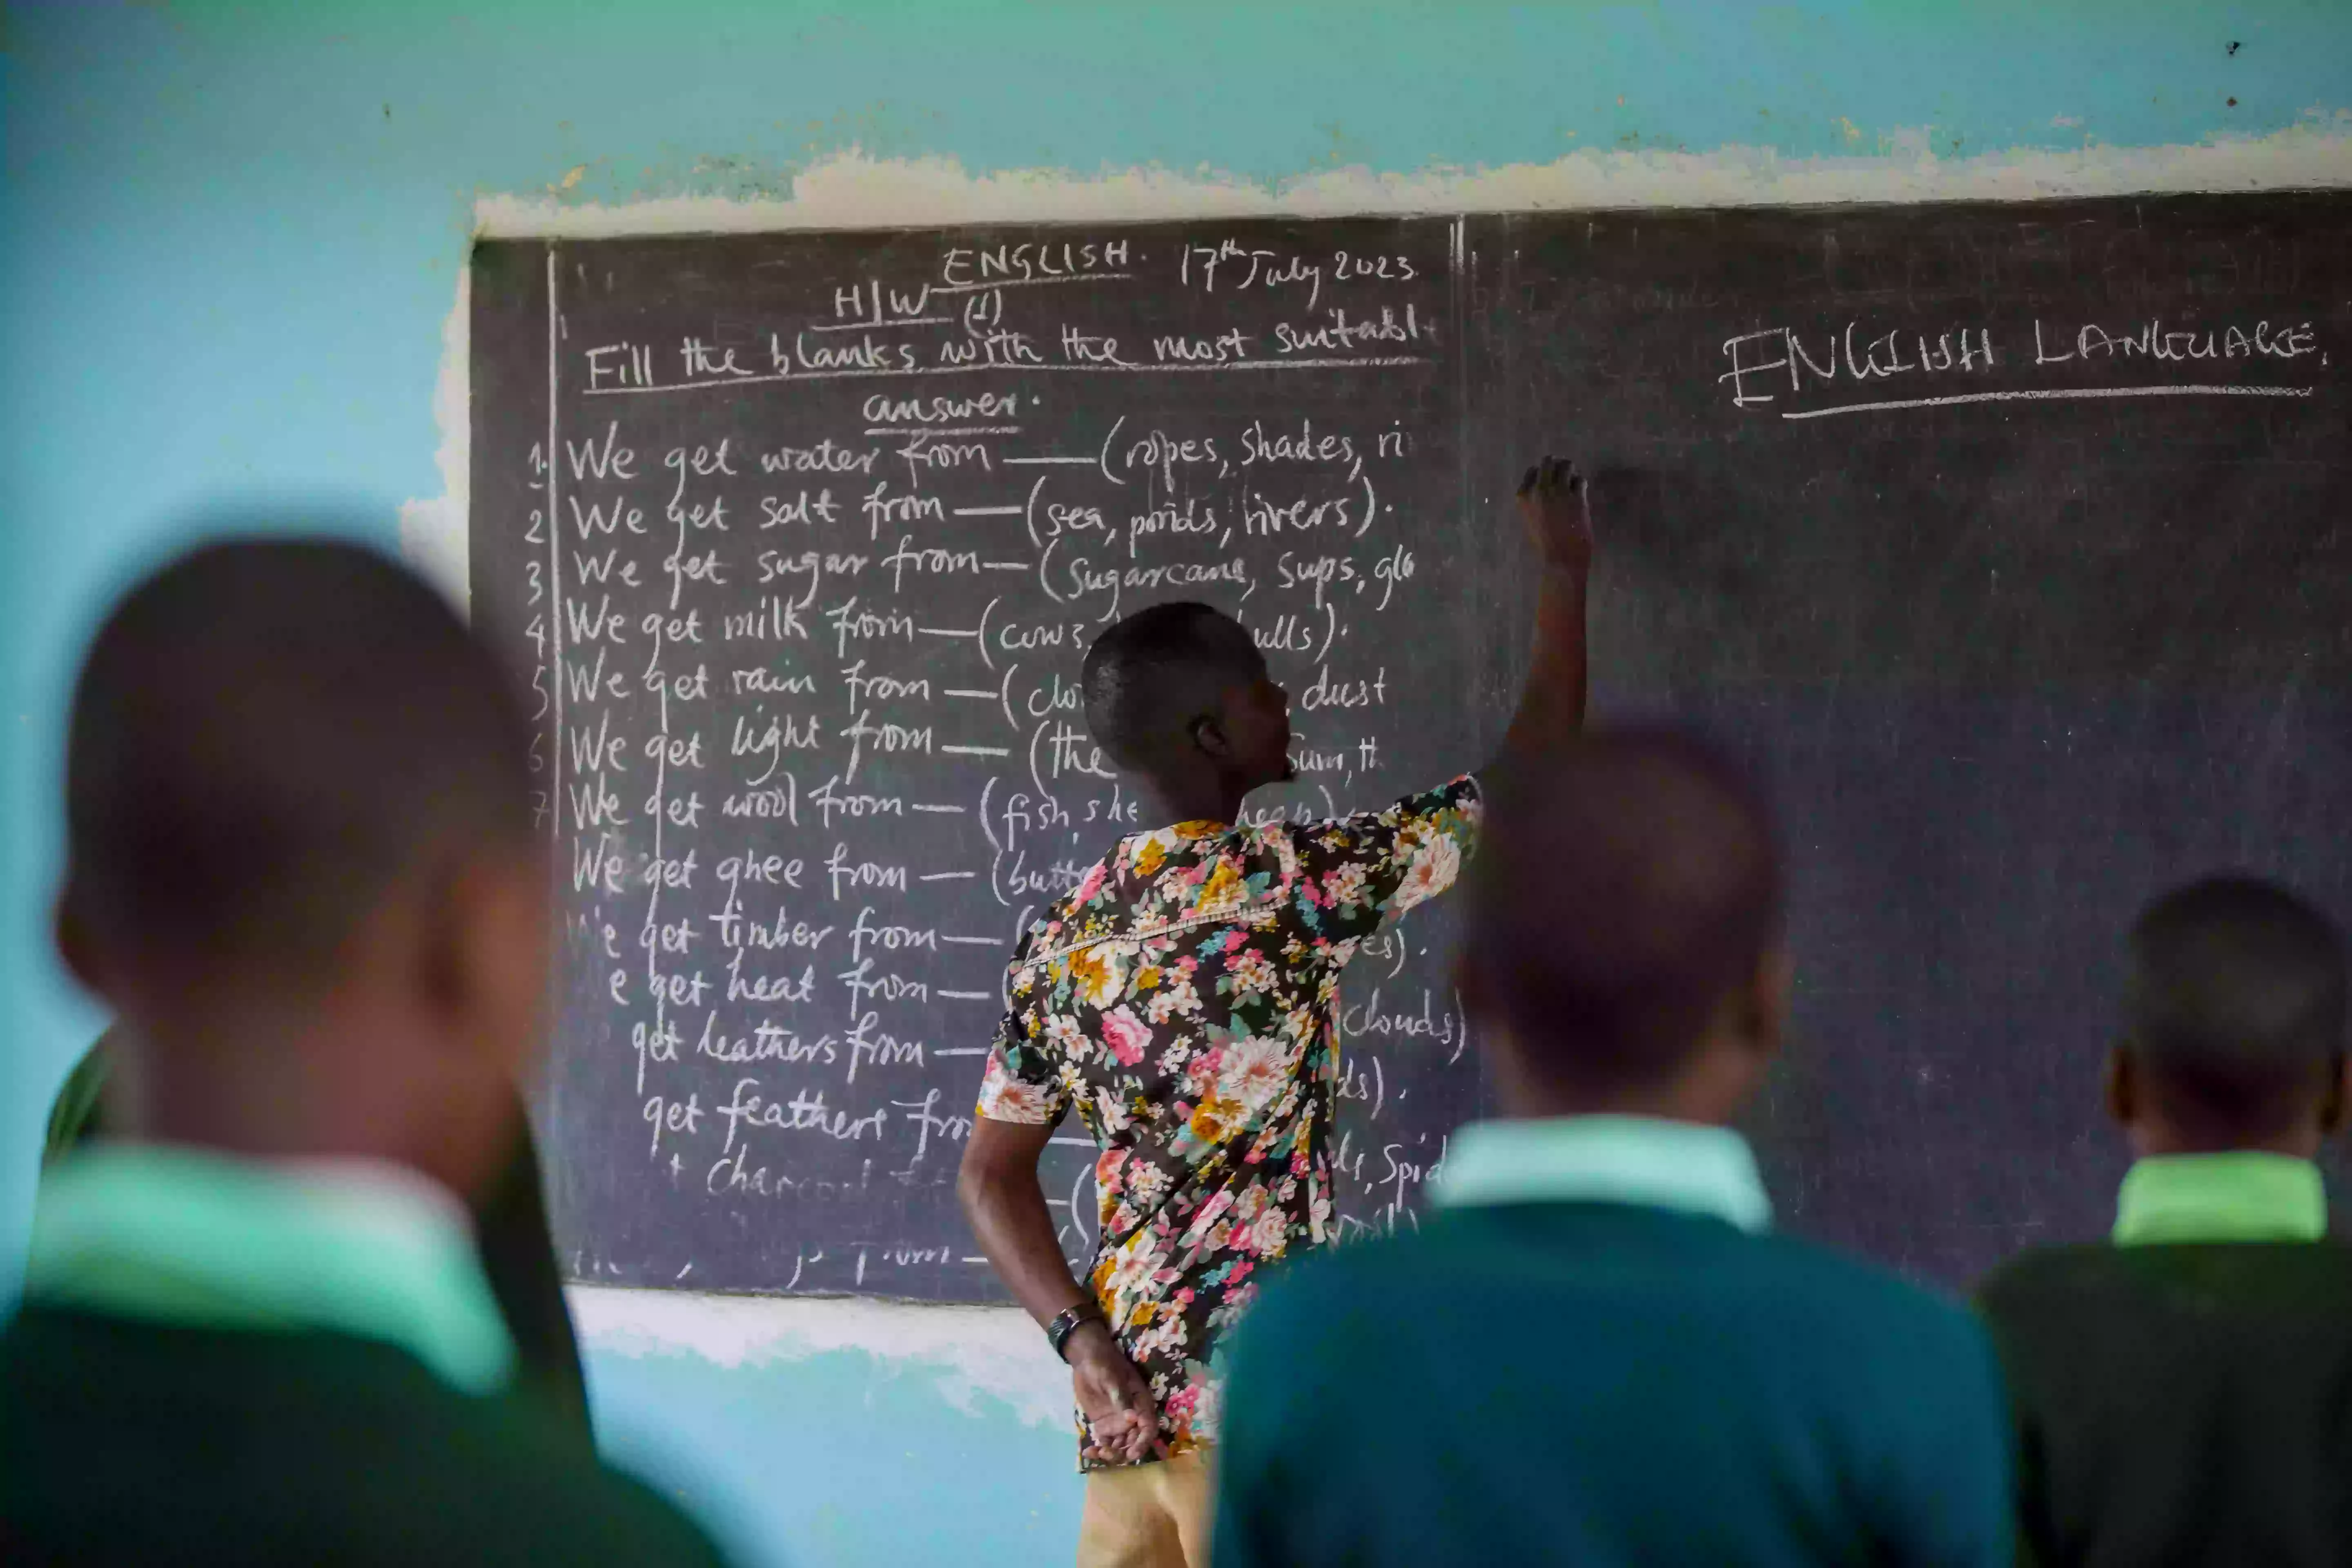 ENGLISH. 17th July 2023.
H/W (1)
Fill the blanks with the most suitabl
answer.
1. We get water from — (ropes, shades, ri
2 We get salt from — (sea, ponds, rivers).
3 We get sugar from — (Sugarcane, Sups, glo
4 We get milk from — (cows, ulls).
5 We get rain from — (clo dust
6 We get light from — (the Sum, th
7 We get wool from — (fish, she heep).
We get ghee from — (butte
e get timber from — ( es).
e get heat from — ( clouds)
get leathers from — ds).
get feathers fro — ds, Spid
charcoal
from —
ENGLISH LANGUAGE.